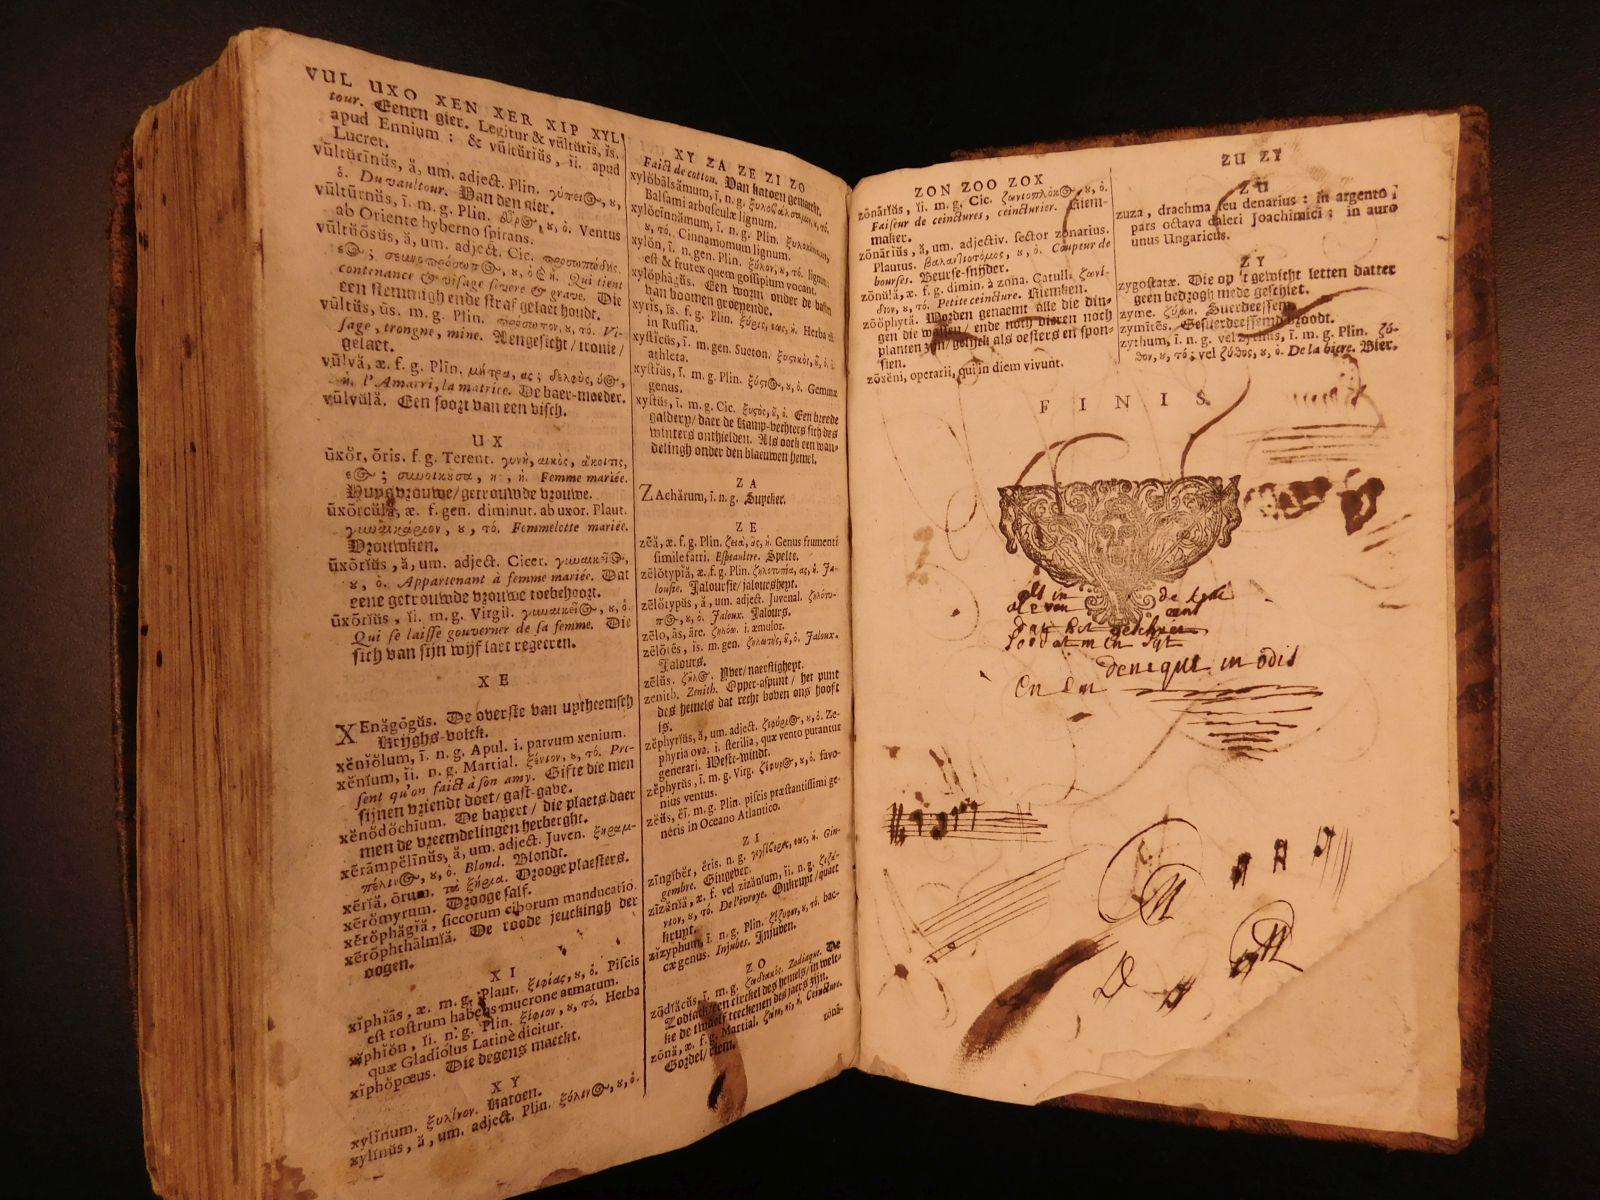 VUL UXO XEN XER XIP XYL
tour. Eenen gier. Legitur & vŭltŭrĭs, ĭs.
apud Ennium : & vŭltŭrĭŭs, ĭi. apud
Lucret.
vŭltŭrīnŭs, ă, um. adject. Plin.
Du vaultour. Van den gier.
vŭltŭrnŭs, i. m. g. Plin. Ventus
ab Oriente hyberno spirans.
vŭltŭōsŭs, ă, um. adject. Cic. προσωπώδης.
Qui tient
contenance & visage severe & grave. Die
een stemmigh ende straf gelaet houdt.
vŭltŭs, ŭs. m. g. Plin. πρόσωπον, ȣ, τό. Vi-
sage, trongne, mine. Aengesicht / tronie /
gelaet.
vŭlvă, æ. f. g. Plin. μήτρα, ας; δελφὺς, ύ@,
ἡ. l'Amarri, la matrice. De baer-moeder.
vŭlvŭlă. Een soort van een visch.
UX
ŭxŏr, ōris. f. g. Terent. γυνή, αικὸς, ἄκοιτις,
Femme mariée.
Huysvrouwe / getrouwde vrouwe.
ŭxōrcŭlă, æ. f. gen. diminut. ab uxor. Plaut.
γυναικάριον, ȣ, τό. Femmelette mariée.
Vrouwken.
ŭxōrĭŭs, ă, um. adject. Cicer.
ȣ, ὁ. Appartenant à femme mariée. Dat
eene getrouwde vrouwe toebehoort.
ŭxōrĭŭs, ĭi. m. g. Virgil.
Qui se laisse gouverner de sa femme. Die
sich van sijn wijf laet regeeren.
XE
XEnăgōgŭs. De overste van uytheemsch
krijghs-volck.
xĕnĭŏlum, ī. n. g. Apul. i. parvum xenium.
xĕnĭum, ĭi. n. g. Martial. ξένιον, ȣ, τό. Pre-
sent qu'on faict à son amy. Gifte die men
sijnen vriendt doet / gast-gave.
xĕnŏdŏchīum. De bayert / die plaets daer
men de vreemdelingen herberght.
xērāmpĕlĭnŭs, ă, um. adject. Juven. ξηραμ-
πέλιν@, ȣ, ὁ. Blond. Blondt.
xērĭă, ōrum. τὰ ξήρια. Drooge plaesters.
xērŏmyrum. Drooge salf.
xērŏphăgĭă, siccorum ciborum manducatio.
xērŏphthălmĭă. De roode jeuckingh der
oogen.
XI
xĭphĭās, æ. m. g. Plaut. ξιφίας, ȣ, ὁ. Piscis
est rostrum habens mucrone armatum.
xĭphĭŏn, ĭi. n. g. Plin. ξίφιον, ȣ, τό. Herba
quæ Gladiōlus Latinè dicitur.
xĭphŏpœus. Die degens maeckt.
XY
xylĭnum. ξυλίνον. Katoen.
xylĭnŭs, ă, um. adject. Plin. ξύλιν@, ȣ, ὁ.
XY ZA ZE ZI ZO
Faict de cotton. Van katoen gemaeckt.
xylŏbălsămum, ī, n. g.
Balsami arbusculæ lignum.
xylŏcīnnămum, ī. n. g. Plin.
ȣ, τό. Cinnamomum lignum.
xylŏn, ī. n. gen. Plin. ξύλον, ȣ, τό. lignum;
est & frutex quem gossipium vocant.
xylŏphăgŭs. Een worm onder de basten
van boomen groeyende.
xyrĭs, ĭs. f. g. Plin. ξύρις, εως, ἡ. Herba est
in Russia.
xystĭcŭs, ī. m. gen. Sueton.
athleta.
xystĭŭs, ī. m. g. Plin. Gemmæ
genus.
xystŭs, ī. m. g. Cic. ξυςὸς, ȣ, ὁ. Een breede
galdery / daer de kamp-vechters sich des
winters onthielden. Als oock een wan-
delingh onder den blaeuwen hemel.
ZA
ZAchărum, ī. n. g. Suycker.
ZE
zēă, æ. f. g. Plin. Genus frumenti
simile farri. Espeaultre. Spelte.
zēlŏtypĭă, æ. f. g. Plin. ζηλοτυπία, ας, ἡ. Ja-
lousie. Jaloursie / jaloursheyt.
zēlŏtypŭs, ă, um. adject. Juvenal. ζηλότυ-
π@, ȣ, ὁ. Jaloux. Jalours.
zēlo, ās, āre. ζηλόω. i. æmulor.
zēlōtēs, ĭs. m. gen. ζηλωτὴς, ȣ, ὁ. Jaloux.
Jalours.
zēlŭs. ζῆλ@. Yver / naerstigheyt.
zenith. Zenith. Opper-aspunt / het punt
des hemels dat recht boven ons hooft
is.
zĕphyrĭŭs, ă, um. adject. ζεφύρι@, ȣ, ὁ. Ze-
phyria ova. i. sterilia, quæ vento putantur
generari. West-windt.
zĕphyrŭs, ī. m. g. Virg. ζέφυρ@, ȣ, ὁ. favo-
nius ventus.
zēŭs, ĕī. m. g. Plin. piscis præstantissimi ge-
neris in Oceano Atlantico.
ZI
zīngĭbĕr, ĕris. n. g. Gin-
gembre. Gingeber.
zīzănĭă, æ. f. vel zizānĭum, ĭi. n. g. ζιζά-
νιον, ȣ, τό. De l'ivroye. Onkruyt / quaet
kruyt.
zīzyphum, ī. n. g. Plin. ζίζυφον, ȣ, τό. bac-
cæ genus. Injubes. Injuben.
ZO
zōdĭăcŭs, ī. m. g. Zodiaque. De
Zodiack / een circkel des hemels / in wel-
ke de twaelf teeckenen des jaers zijn.
zōnă, æ. f. g. Martial. ζώνη, ης, ἡ. Ceincture.
Gordel / riem.
zōnā-
ZON ZOO ZOX
zōnārĭŭs, ĭi. m. g. Cic. ζωνιοπλόκ@ ȣ, ὁ.
Faiseur de ceinctures, ceincturier. Riem-
maker.
zōnārĭŭs, ă, um. adjectiv. sector zonarius.
Plautus. βαλαντιοτόμος, ȣ, ὁ. Coupeur de
bourses. Beurse-snijder.
zōnŭlă, æ. f. g. dimin. à zona. Catull. ζωνί-
διον, ȣ, τό. Petite ceincture. Riemken.
zōŏphytă. Worden genaemt alle die din-
gen die wassen / ende noch dieren noch
planten zijn / gelijck als oesters en spon-
sien.
zōxĕni, operarii, qui in diem vivunt.
FINIS
ZU ZY
ZU
zuza, drachma seu denarius: in argento;
pars octava daleri Joachimici; in auro
unus Ungaricus.
ZY
zygostatæ. Die op 't gewicht letten datter
geen bedrogh mede geschiet.
zyme. ζύμη. Suerdeessem.
zymītēs. Gesuerdeessemd broodt.
zythum, ī. n. g. vel zythus, ī. m. g. Plin. ζύ-
θον, ȣ, τό; vel ζύθος, ȣ, ὁ. De la biere. Bier.
als in
de
dat het geschreven